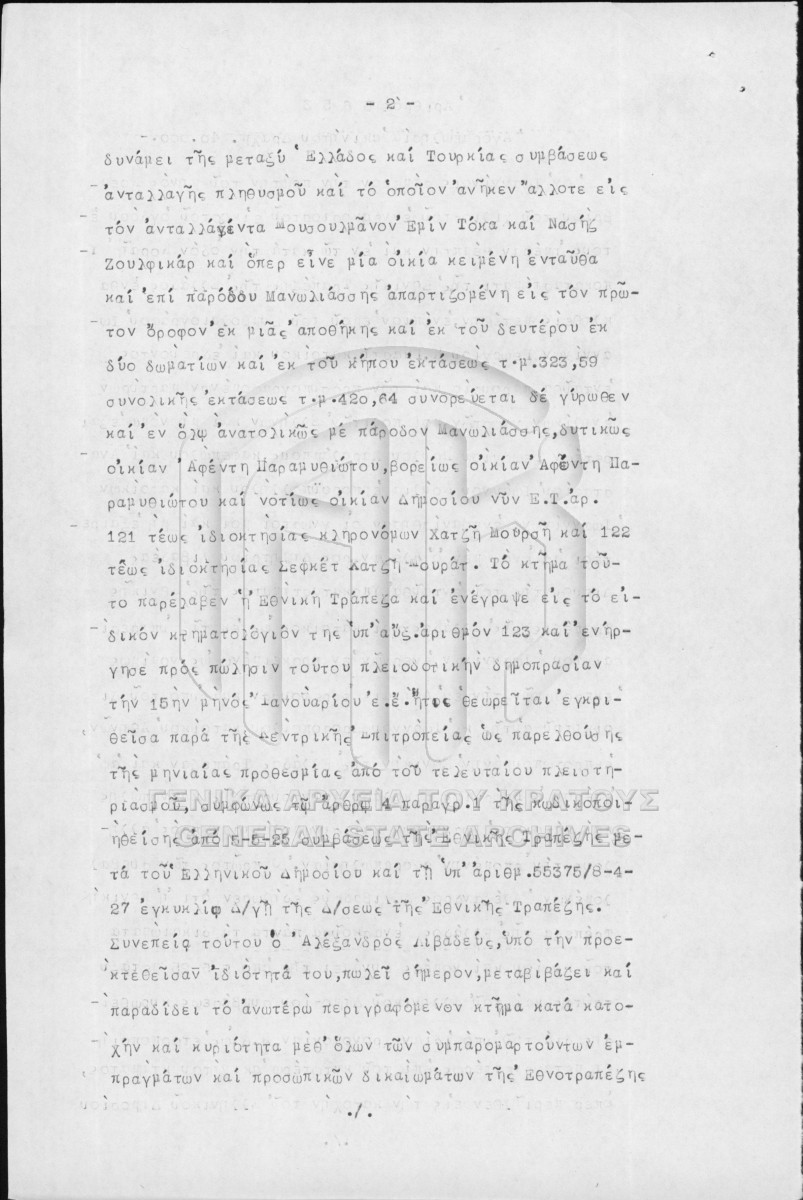 - 2 -
δυνάμει τῆς μεταξύ Ἑλλάδος καί Τουρκίας συμβάσεως
ἀνταλλαγῆς πληθυσμοῦ καί τό ὁποῖον ἀνῆκεν ἄλλοτε εἰς
τόν ἀνταλλαγέντα Μουσουλμᾶνον Ἐμίν Τόκα καί Νασήζ
Ζουλφικάρ καί ὅπερ εἶνε μία οἰκία κειμένη ἐνταῦθα
καί ἐπί παρόδου Μανωλιάσσης ἀπαρτιζομένη εἰς τόν πρῶ-
τον ὄροφον ἐκ μιᾶς ἀποθήκης καί ἐκ τοῦ δευτέρου ἐκ
δύο δωματίων καί ἐκ τοῦ κήπου ἐκτάσεως τ.μ.323,59
συνολικῆς ἐκτάσεως τ.μ.42ο,64 συνορεύεται δέ γύρωθεν
καί ἐν ὅλῳ ἀνατολικῶς μέ πάροδον Μανωλιάσσης,δυτικῶς
οἰκίαν Ἀφέντη Παραμυθιώτου,βορείως οἰκίαν Ἀφέντη Πα-
ραμυθιώτου καί νοτίως οἰκίαν Δημοσίου νῦν Ε.Τ.ἀρ.
121 τέως ἰδιοκτησίας κληρονόμων Χατζῆ Μουρσῆ καί 122
τέως ἰδιοκτησίας Σεφκέτ Χατζῆ Μουράτ. Τό κτῆμα τοῦ-
το παρέλαβεν ἡ Ἐθνική Τράπεζα καί ἐνέγραψε εἰς τό εἰ-
δικόν κτηματολόγιόν της ὑπ' αὔξ.ἀριθμόν 123 καί ἐνήρ-
γησε πρός πώλησιν τούτου πλειοδοτικήν δημοπρασίαν
τήν 15ην μηνός Ἰανουαρίου ἐ.ἔ.ἥτις θεωρεῖται ἐγκρι-
θεῖσα παρά τῆς Κεντρικῆς Ἐπιτροπείας ὡς παρελθούσης
τῆς μηνιαίας προθεσμίας ἀπό τοῦ τελευταίου πλειστη-
ριασμοῦ, συμφώνως τῷ ἄρθρῳ 4 παραγρ.1 τῆς κωδικοποι-
ηθείσης ἀπό 5-5-25 συμβάσεως τῆς Ἐθνικῆς Τραπέζης με-
τά τοῦ Ἑλληνικοῦ Δημοσίου καί τῇ ὑπ' ἀριθμ.55375/8-4-
27 ἐγκυκλίῳ Δ/γῇ τῆς Δ/σεως τῆς Ἐθνικῆς Τραπέζης.
Συνεπείᾳ τούτου ὁ Ἀλέξανδρος Λιβαδεύς,ὑπό τήν προε-
κτεθεῖσαν ἰδιότητά του,πωλεῖ σήμερον,μεταβιβάζει καί
παραδίδει τό ἀνωτέρω περιγραφόμενον κτῆμα κατά κατο-
χήν καί κυριότητα μεθ' ὅλων τῶν συμπαρομαρτούντων ἐμ-
πραγμάτων καί προσωπικῶν δικαιωμάτων τῆς Ἐθνοτραπέζης
./.
ΓΕΝΙΚΑ ΑΡΧΕΙΑ ΤΟΥ ΚΡΑΤΟΥΣ
GENERAL STATE ARCHIVES